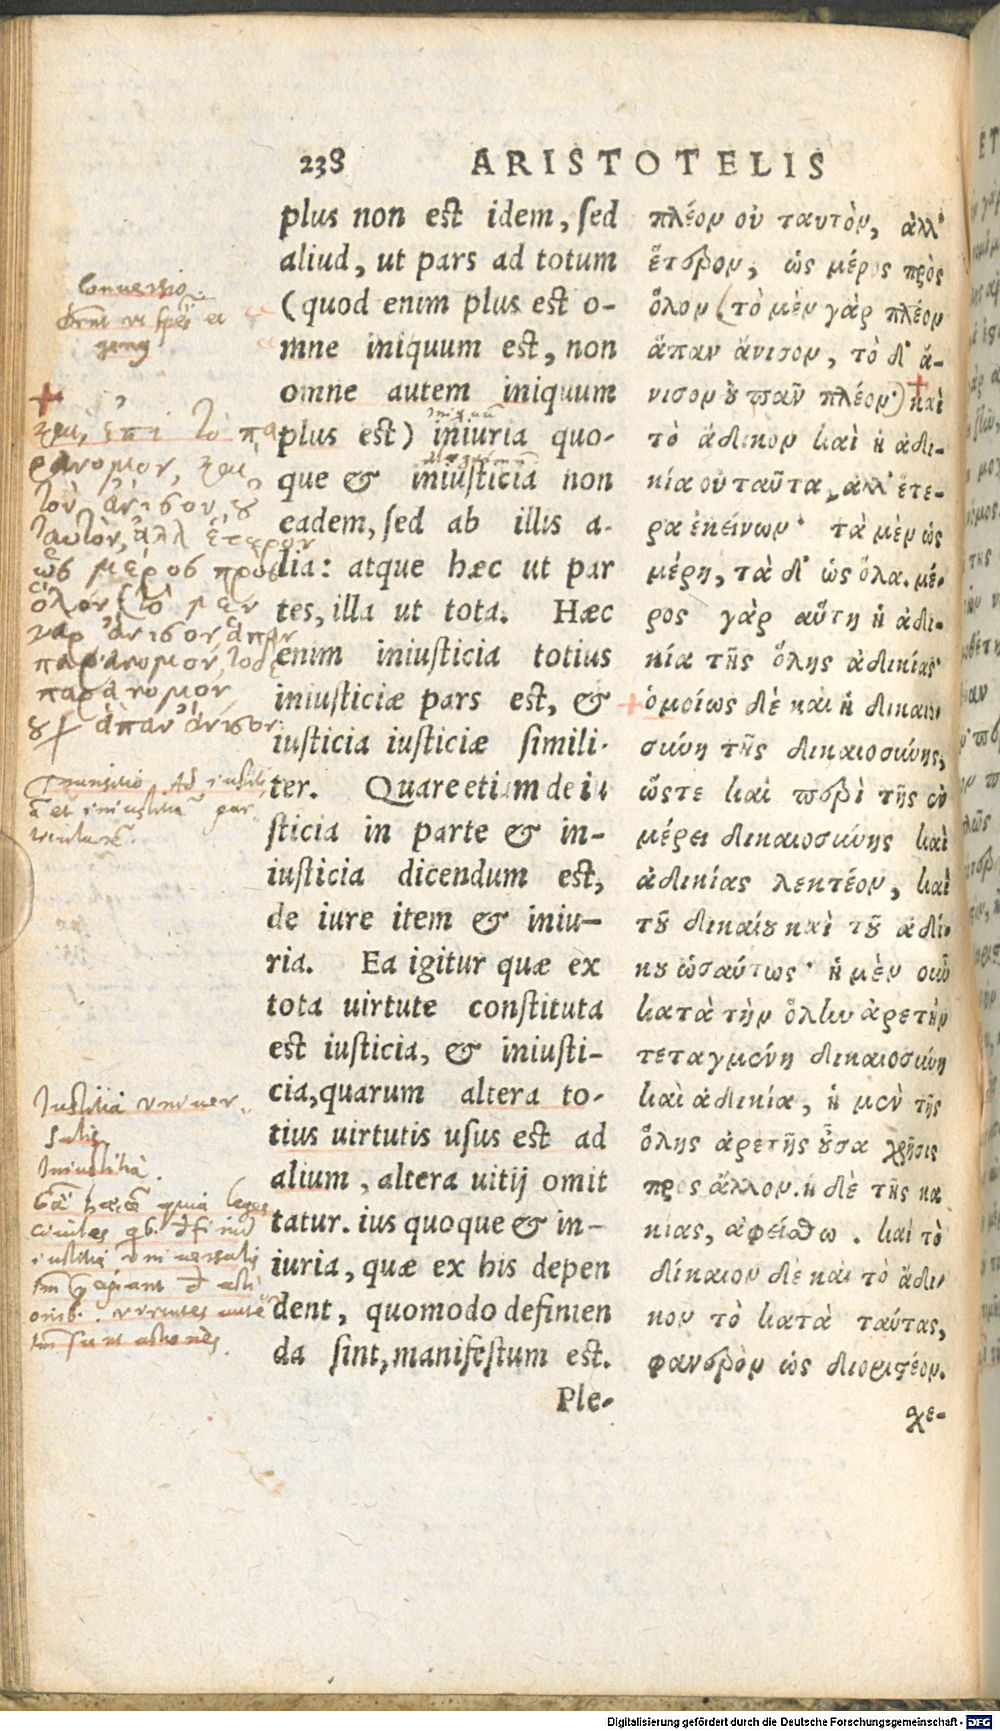 238 ARISTOTELIS
plus non est idem, sed
aliud, ut pars ad totum
(quod enim plus est o-
mne iniquum est, non
omne autem iniquum
plus est) iniuria quo-
que & iniusticia non
eadem, sed ab illis a-
lia: atque hæc ut par
tes, illa ut tota. Hæc
enim iniusticia totius
iniusticiæ pars est, &
iusticia iusticiæ simili-
ter. Quare etiam de iu
sticia in parte & in-
iusticia dicendum est,
de iure item & iniu-
ria. Ea igitur quæ ex
tota uirtute constituta
est iusticia, & iniusti-
cia, quarum altera to-
tius uirtutis usus est ad
alium, altera uitij omit
tatur. ius quoque & in-
iuria, quæ ex his depen
dent, quomodo definien
da sint, manifestum est.
Ple-
πλέον οὐ ταυτὸν, ἀλλ'
ἕτερον, ὡς μέρος πρὸς
ὅλον (τὸ μὲν γὰρ πλέον
ἅπαν ἄνισον, τὸ δ' ἄ-
νισον ȣ παῦν πλέον) καὶ
τὸ ἄδικον καὶ ἡ ἀδι-
κία οὐ ταῦτα, ἀλλ' ἕτε-
ρα ἐκείνων· τὰ μὲν ὡς
μέρη, τὰ δ' ὡς ὅλα. μέ-
ρος γὰρ αὕτη ἡ ἀδι-
κία τῆς ὅλης ἀδικίας
ὁμοίως δὲ καὶ ἡ δικαιο
σύνη τῆς δικαιοσύνης,
ὥστε καὶ περὶ τῆς ἐν
μέρει δικαιοσύνης καὶ
ἀδικίας λεκτέον, καὶ
τȣ͂ δικαίȣ καὶ τȣ͂ ἀδί-
κȣ ὡσαύτως· ἡ μὲν οὖν
κατὰ τὴν ὅλην ἀρετὴν
τεταγμένη δικαιοσύνη
καὶ ἀδικία, ἡ μὲν τῆς
ὅλης ἀρετῆς ȣ̓͂σα χρῆσις
πρὸς ἄλλον. ἡ δὲ τῆς κα
κίας, ἀφείσθω. καὶ τὸ
δίκαιον δὲ καὶ τὸ ἄδι-
κον τὸ κατὰ ταύτας,
φανερὸν ὡς διοριστέον.
χε-
Conuersio.
et
genus
+
καὶ, ἐπὶ τὸ πα
ράνομον, καὶ
τὸν ἄνισον, ȣ
ταυτὸν, ἀλλ ἕτερον
ὡς μέρος πρὸς
ὅλον (τὸ μὲν
γὰρ ἄνισον ἅπαν
παράνομον, τὸ δὲ
παράνομον
ȣχ ἅπαν ἄνισον
Transitio Ad iustiti
Iustitia vniuer
salis
Iniustitia.
quia leges
ciuiles
iustitia vniuersalis
sunt actiones.
Digitalisierung gefördert durch die Deutsche Forschungsgemeinschaft - DFG